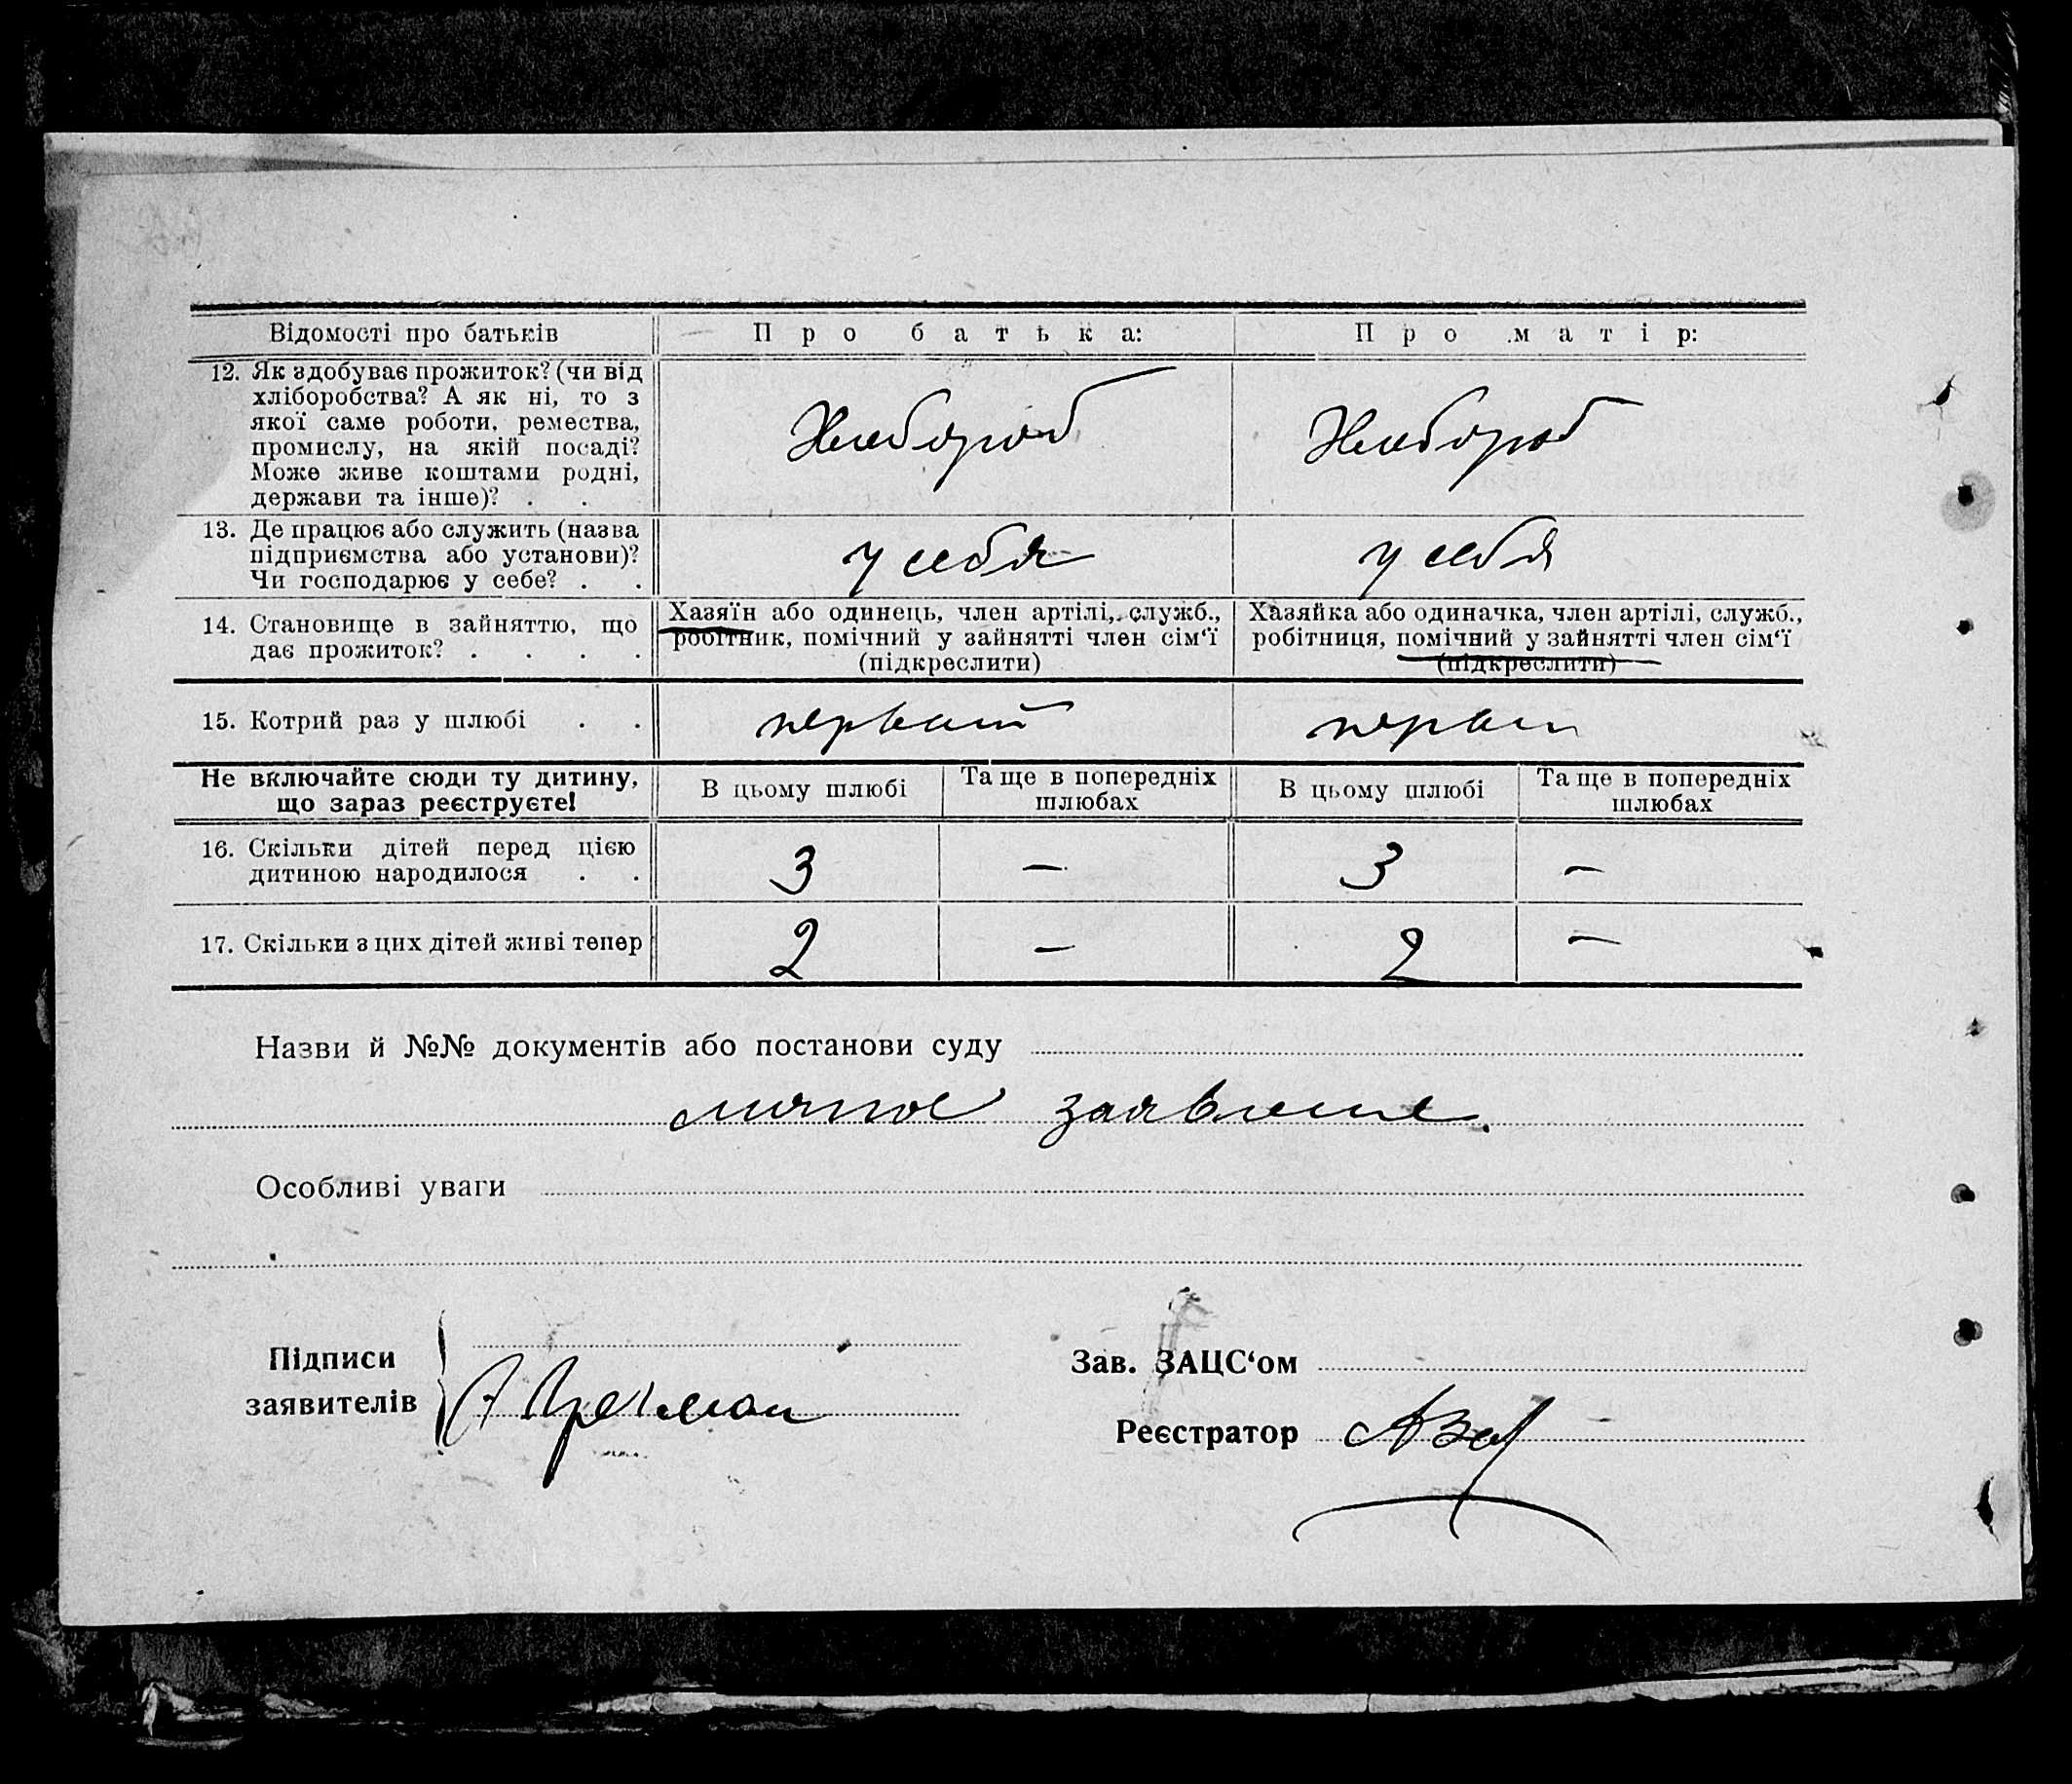 Відомості про батьків
Про батька:
Про матір:
12. Як здобуває прожиток? (чи від
хліборобства? А як ні, то з
якої саме роботи, ремества,
промислу, на якій посаді?
Може живе коштами родні,
держави та інше)? . .
Хлебороб
Хлебороб
13. Де працює або служить (назва
підприємства або установи)?
Чи господарює у себе? . .
у себя
у себя
14. Становище в зайняттю, що
дає прожиток? . . . .
Хазяїн або одинець, член артілі, служб.,
робітник, помічний у зайнятті член сім‘ї
(підкреслити)
Хазяйка або одиначка, член артілі, служб.,
робітниця, помічний у зайнятті член сім‘ї
(підкреслити)
15. Котрий раз у шлюбі . .
первый
первый
Не включайте сюди ту дитину,
що зараз реєструєте!
В цьому шлюбі
Та ще в попередніх
шлюбах
В цьому шлюбі
Та ще в попередніх
шлюбах
16. Скільки дітей перед цією
дитиною народилося . .
3
—
3
—
17. Скільки з цих дітей живі тепер
2
—
2
—
Назви й №№ документів або постанови суду
личное заявление.
Особливі уваги
Підписи
заявителів
Зав. ЗАЦС‘ом
Реєстратор